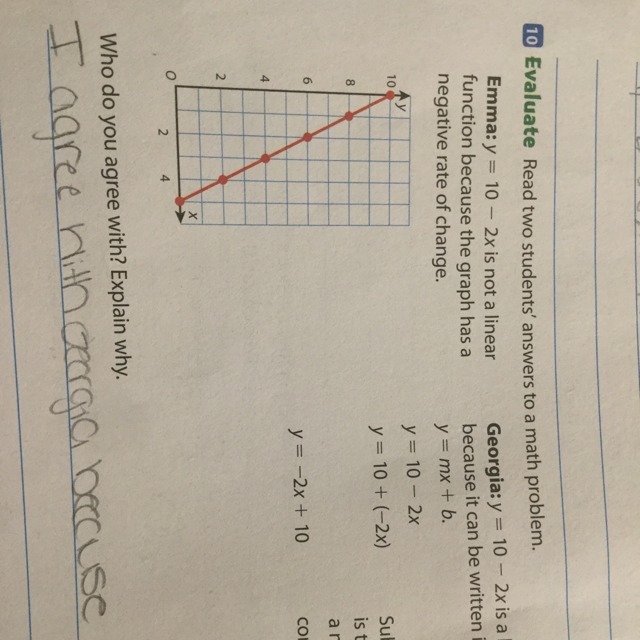 10 Evaluate Read two students' answers to a math problem.
Emma: y = 10 − 2x is not a linear
function because the graph has a
negative rate of change.
y
10
8
6
4
2
O
2
4
x
Georgia: y = 10 − 2x is a
because it can be written
y = mx + b.
y = 10 − 2x
y = 10 + (−2x)
y = −2x + 10
Who do you agree with? Explain why.
I agree with georgia because